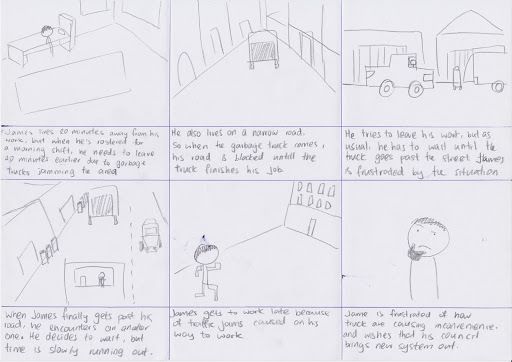 James lives 20 minutes away from his
work, but when he's rostered for
a morning shift, he needs to leave
40 minutes earlier due to garbage
trucks jamming the area
He also lives on a narrow road.
So when the garbage truck comes,
his road is blocked untill the
truck finishes his job
He tries to leave his work, but as
usual, he has to wait until the
truck goes past the street. James
is frustraded by the situation
When James finally gets past his
road, he encounters on another
one. He decides to wait, but
time is slowly running out.
James gets to work late because
of traffic jams caused on his
way to work
Jame is frustrated of how
truck are causing inconvenience.
and wishes that his council
brings new system out.